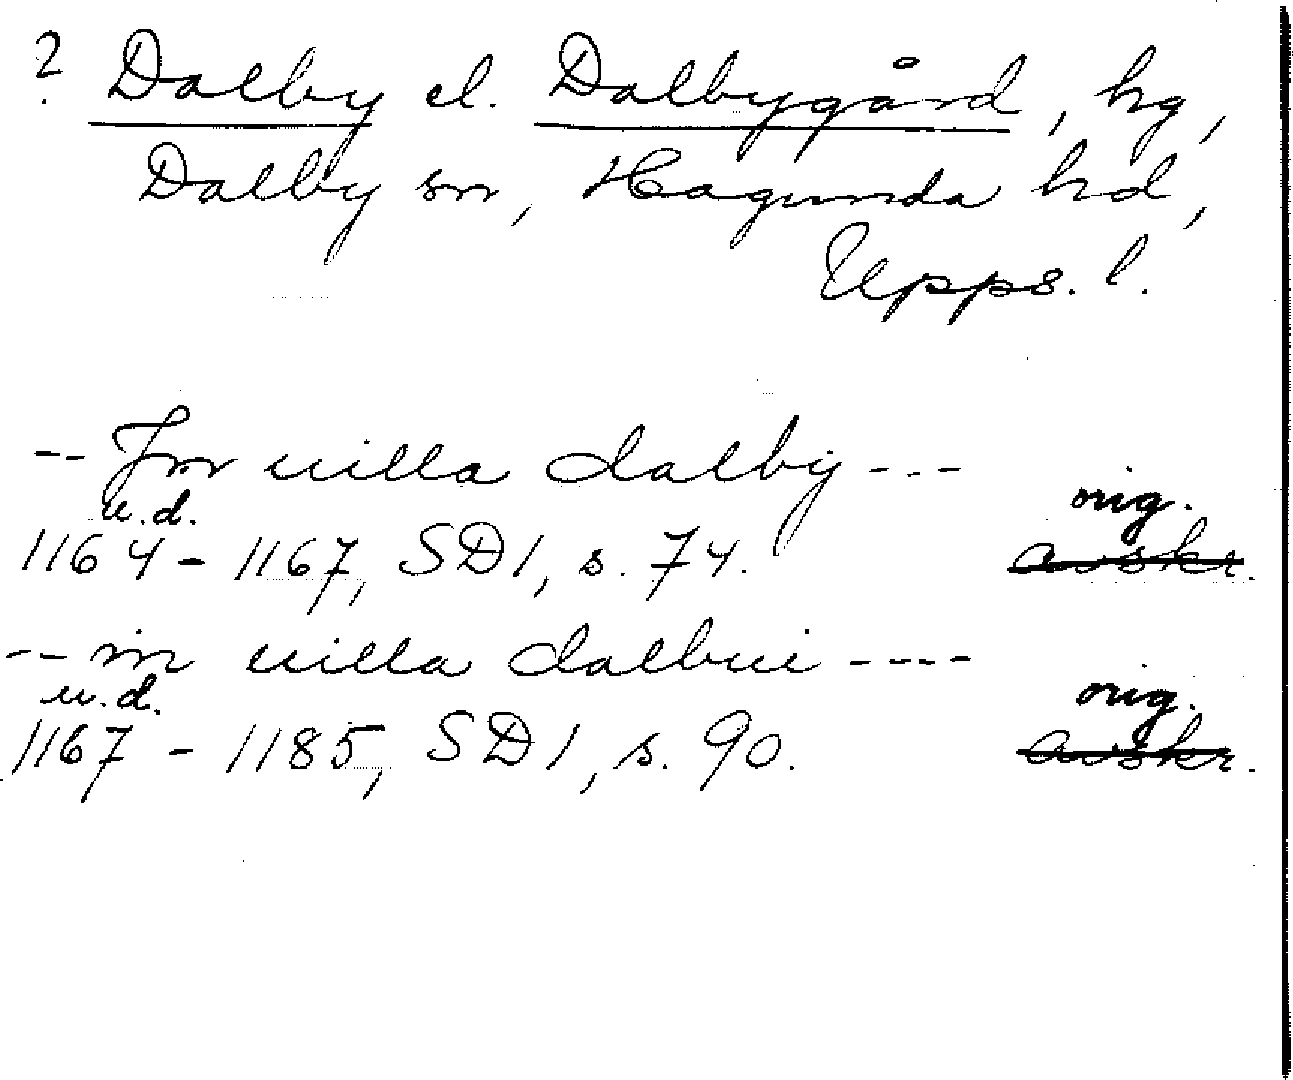 ? Dalby el. Dalbygård, hg,
Dalby sn, Hagunda hd,
Upps. l.
-- Jn uilla dalby ---
u.d.
orig.
1164 - 1167, SD1, s. 74.
avskr.
-- in uilla dalbui ----
u.d.
orig.
1167 - 1185, SD1, s. 90.
avskr.